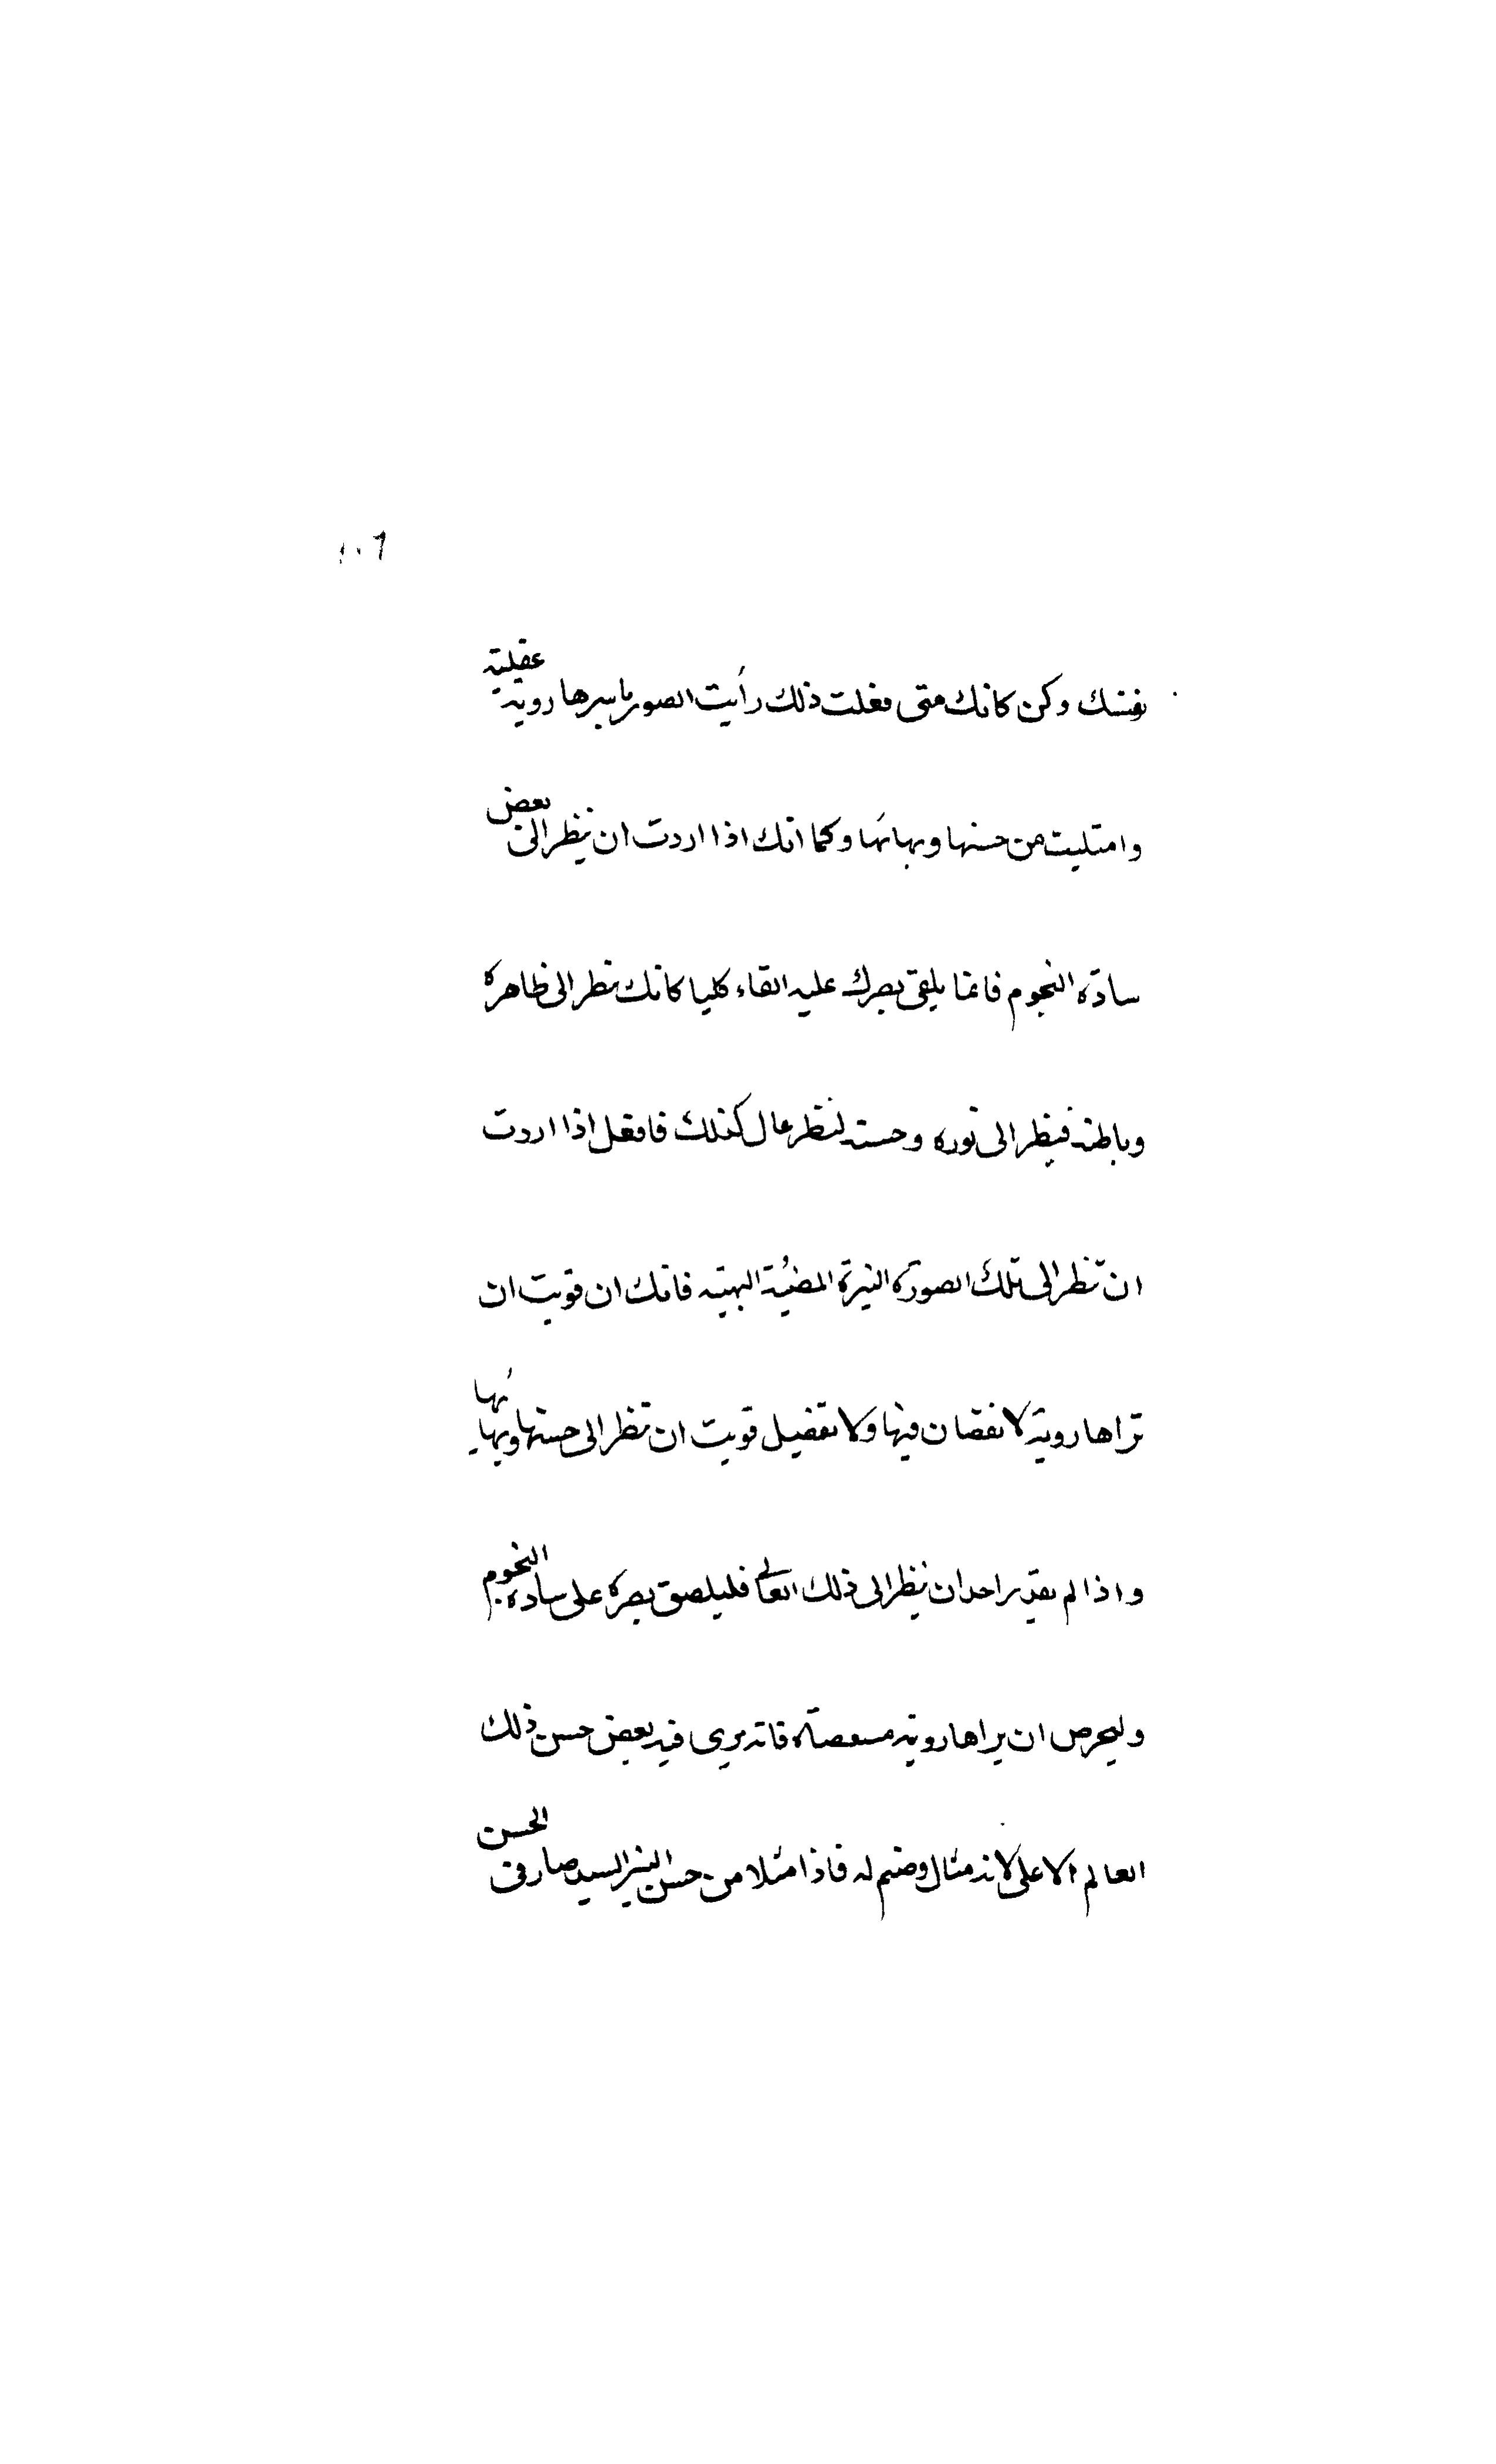 ١٠٦
نفسك وكن كانك متى فعلت ذلك رأيت الصور باسرها روية عقلية
وامتليت من حسنها وبهائها وكما انك اذا اردت ان ينظر الى بعض
سادة النجوم فانما يلقى بصرك عليه القاء كليا كانك تنظر الى ظاهره
وباطنه فينظر الى نوره وحسنه لنظر عال كذلك فافعل اذا اردت
ان تنظر الى تلك الصورة النيرة المضيئة البهية فانك ان قويت ان
تراها روية لا نقصان فيها ولا تفصيل قويت ان تنظر الى حسنها وبهائها
واذا لم يقدر احد ان ينظر الى ذلك العالم فليلصق بصره على سادة النجوم
وليحرص ان يراها روية مستقصاة فانه يرى فيه بعض حسن ذلك
العالم الاعلى لانه مثال وصنم له فاذا امتلا من حسن النير السيد صار فى الحسن